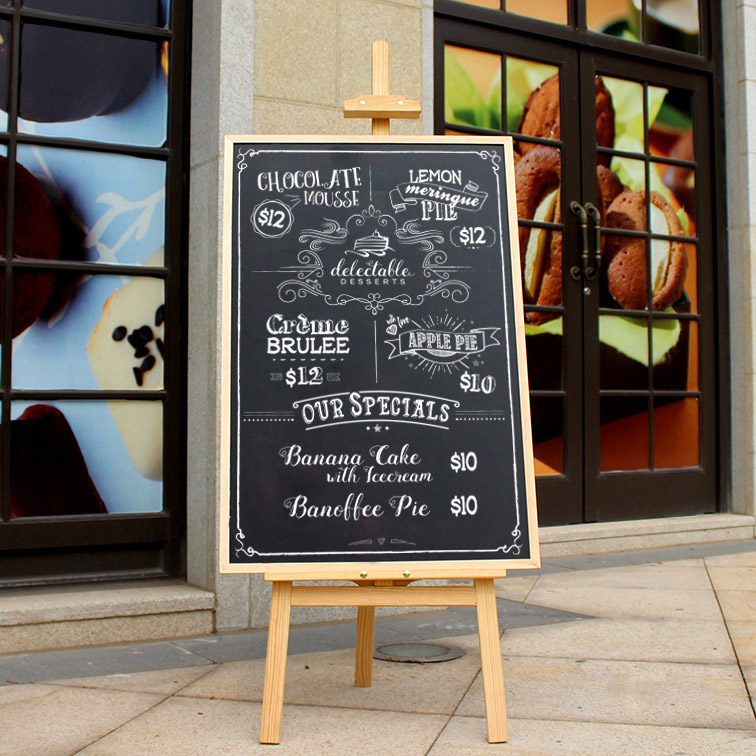 CHOCOLATE
MOUSSE
$12
LEMON
meringue
PIE
$12
delectable
DESSERTS
Crème
BRULEE
$12
APPLE PIE
$10
OUR SPECIALS
Banana Cake
with Icecream
$10
Banoffee Pie $10